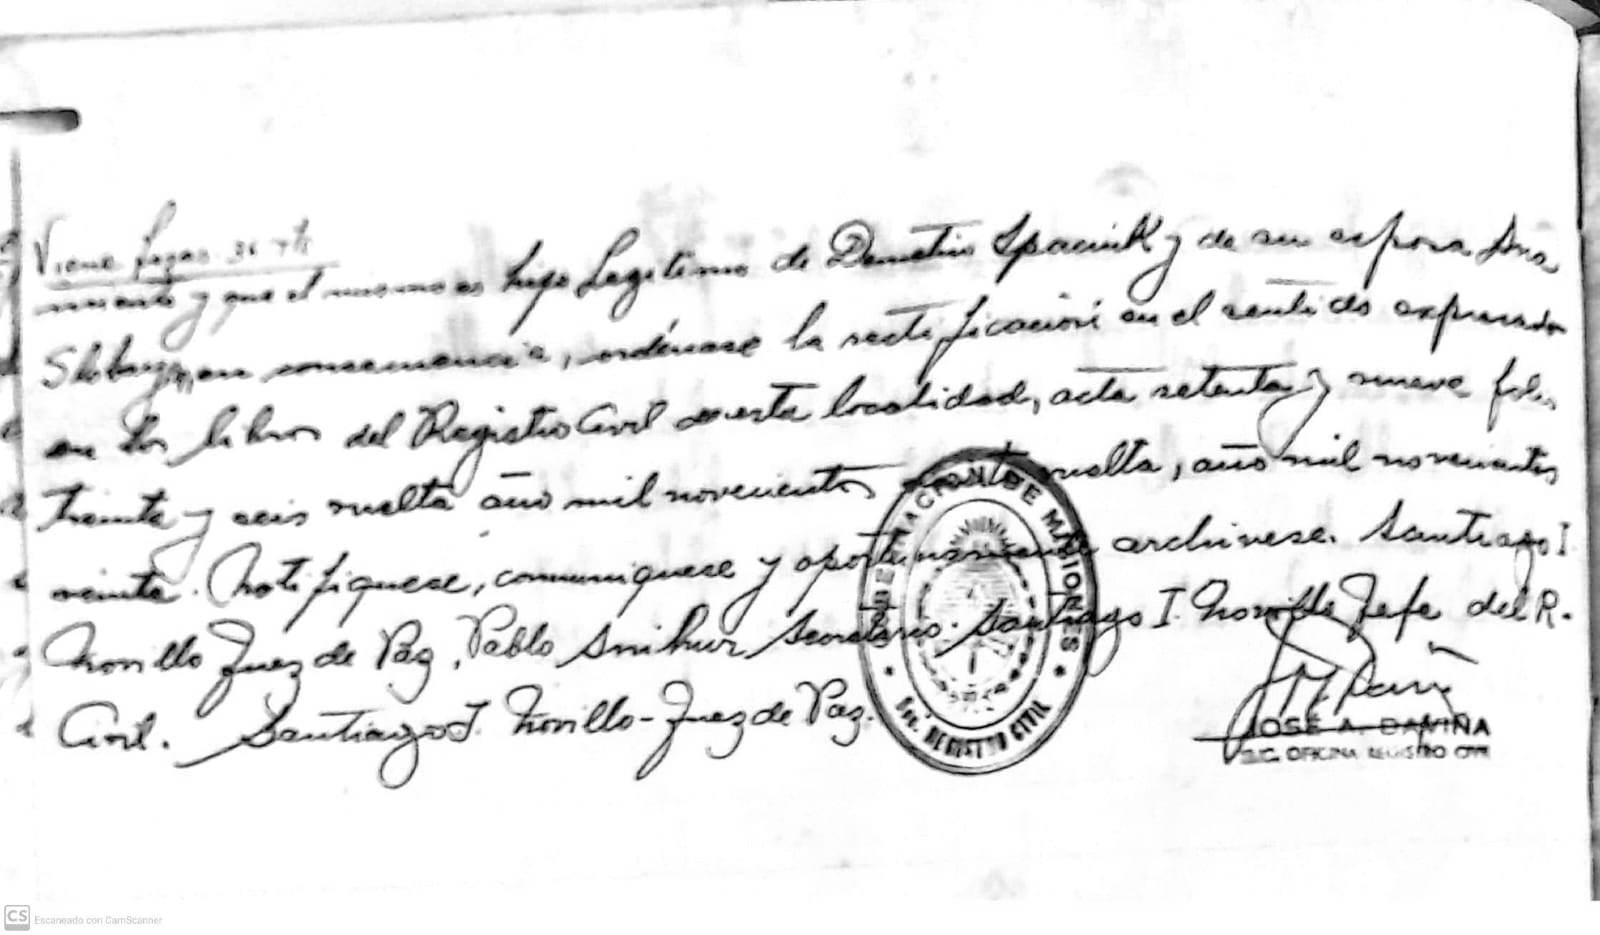 Viene fojas 36 vta
miento y que el mismo es hijo legítimo de Demetrio Spaciuk y de su esposa Ana
en consecuencia, ordénase la rectificación en el sentido expresado
en los libros del Registro Civil de esta localidad, acta setenta y nueve folio
treinta y seis vuelta año mil novecientos vuelta, año mil novecientos
veinte. Notifíquese, comuníquese y oportunamente archívese. Santiago I.
Morillo Juez de Paz, Pablo Smihur Secretario. Santiago I. Morillo Jefe del R.
Civil. Santiago I. Morillo - Juez de Paz.
GOBERNACION DE MISIONES
REGISTRO CIVIL
JOSE A. DAVIÑA
ENC. OFICINA REGISTRO CIVIL
CS Escaneado con CamScanner